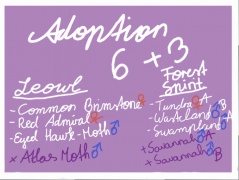 Adoption
6 + 3
Leowl
- Common Brimstone♀
- Red Admiral♀
- Eyed Hawk-Moth♂
+ Atlas Moth♂
Forest
Spirit
- Tundra♀A
- Westland♂B
- Swampland♂A
+ Savannah♂A
+ Savannah♂B